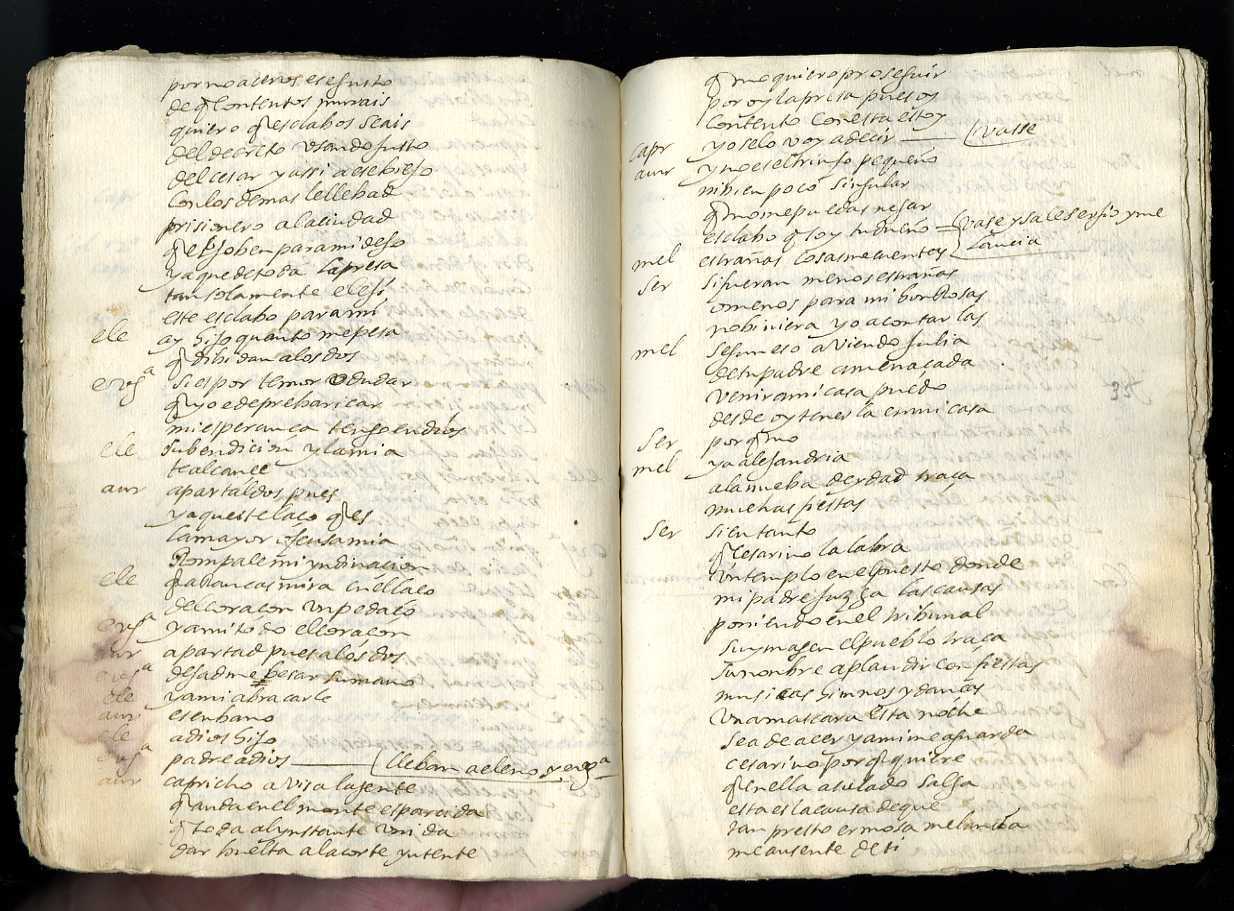 por no aceros ese gusto
de q contentos murais
quiero q esclabos seais
del decreto usando justo
del cesar y assi a ese biejo
con los demas le llebad
prisionero a la ciudad
q el joben para mi dejo
ya que de toda la presa
tan solamente eleji
este esclabo para mi
ele ay hijo quanto me pesa
q dibidan a los dos
eugª si es por temor o dudar
q yo e de prebaricar
mi esperança tengo en dios
ele su bendicion y la mia
te alcance
aur apartaldos pues
y aqueste laço q es
la mayor ofensa mia
rompale mi yndinacion
ele q arrancas mira en el laço
del coraçon un pedaço
eugª y a mi todo el coraçon
aur apartad pues a los dos
eugª dejadme besar su mano
ele y a mi abraçarle
aur es en bano
ele a dios hijo
eugª padre a dios — lleban a eleno y eugª
aur capricho avisa la jente
q anda en el monte esparcida
q toda al ynstante unida
dar buelta a la corte yntente
q no quiero proseguir
por oy la presa pues oy
contento con esta estoy
capr yo se lo voy a decir — vasse
aur y no es el triunfo pequeño
ni bien poco singular
q no me puedas negar
esclabo q soy tu dueño = vase y sale serjio y me
lancia
mel estrañas cosas me quentes
ser si fueran menos estrañas
o menos para mi
no biniera yo a contarlas
mel segun eso aviendo julia
de tu padre amenaçada
venir a mi casa puedo
desde oy tenerla en mi casa
ser por q no
mel ya alejandria
a la nueba deydad traça
muchas fiestas
ser si en tanto
q cesarino la labra
un templo en el puesto donde
mi padre juzga las causas
poniendo en el tribunal
su ymagen el pueblo traça
su nombre aplaudir con fiestas
musicas himnos y danças
una mascara esta noche
sea de acer y a mi me aguarda
cesarino por q quiere
q en ella a su lado salga
esta es la causa de que
tan presto ermosa melancia
me ausente de ti
35